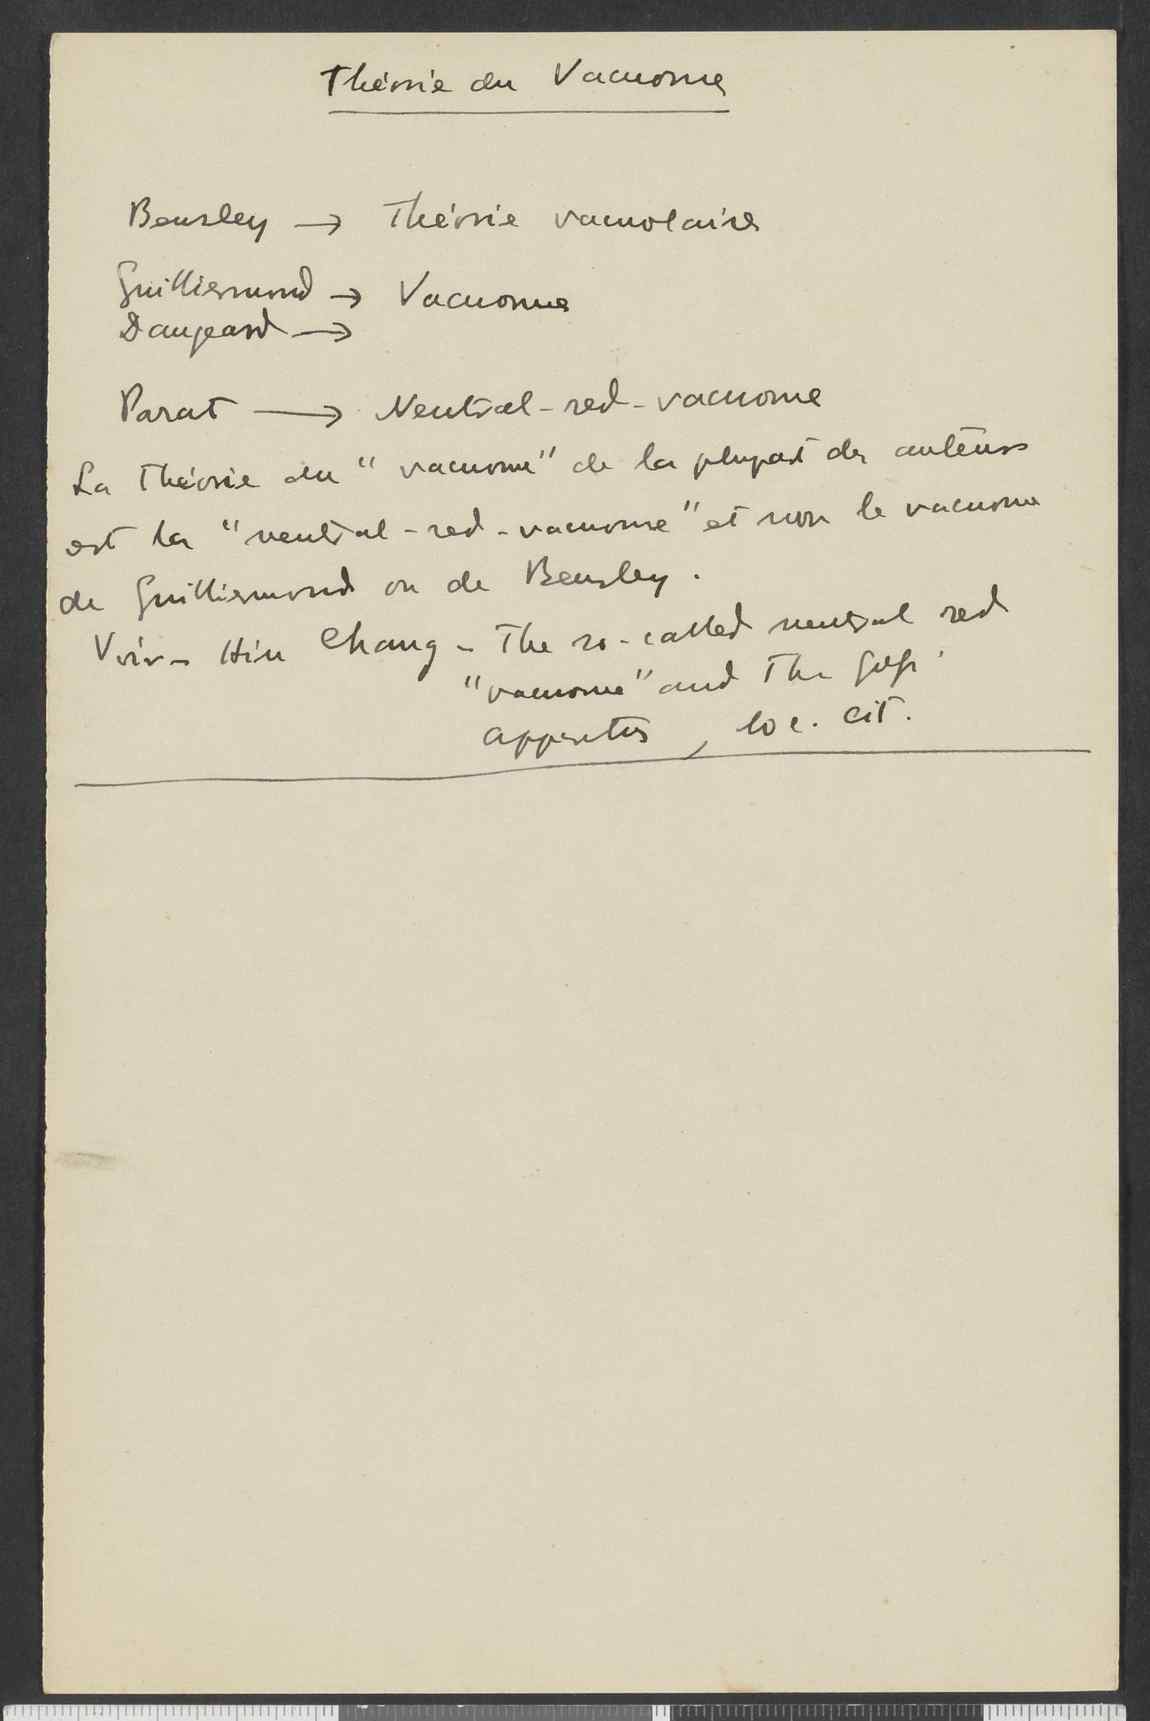 Théorie du Vacuome
Bensley → Théorie vacuolaire
Guilliermond → Vacuome
Dangeard →
Parat → Neutral-red-vacuome
La théorie du "vacuome" de la plupart des auteurs
est la "neutral-red-vacuome" et non le vacuome
de Guilliermond ou de Bensley.
Voir - Hin Chang - The so-called neutral red
"vacuome" and the Golgi
apparatus, loc. cit.